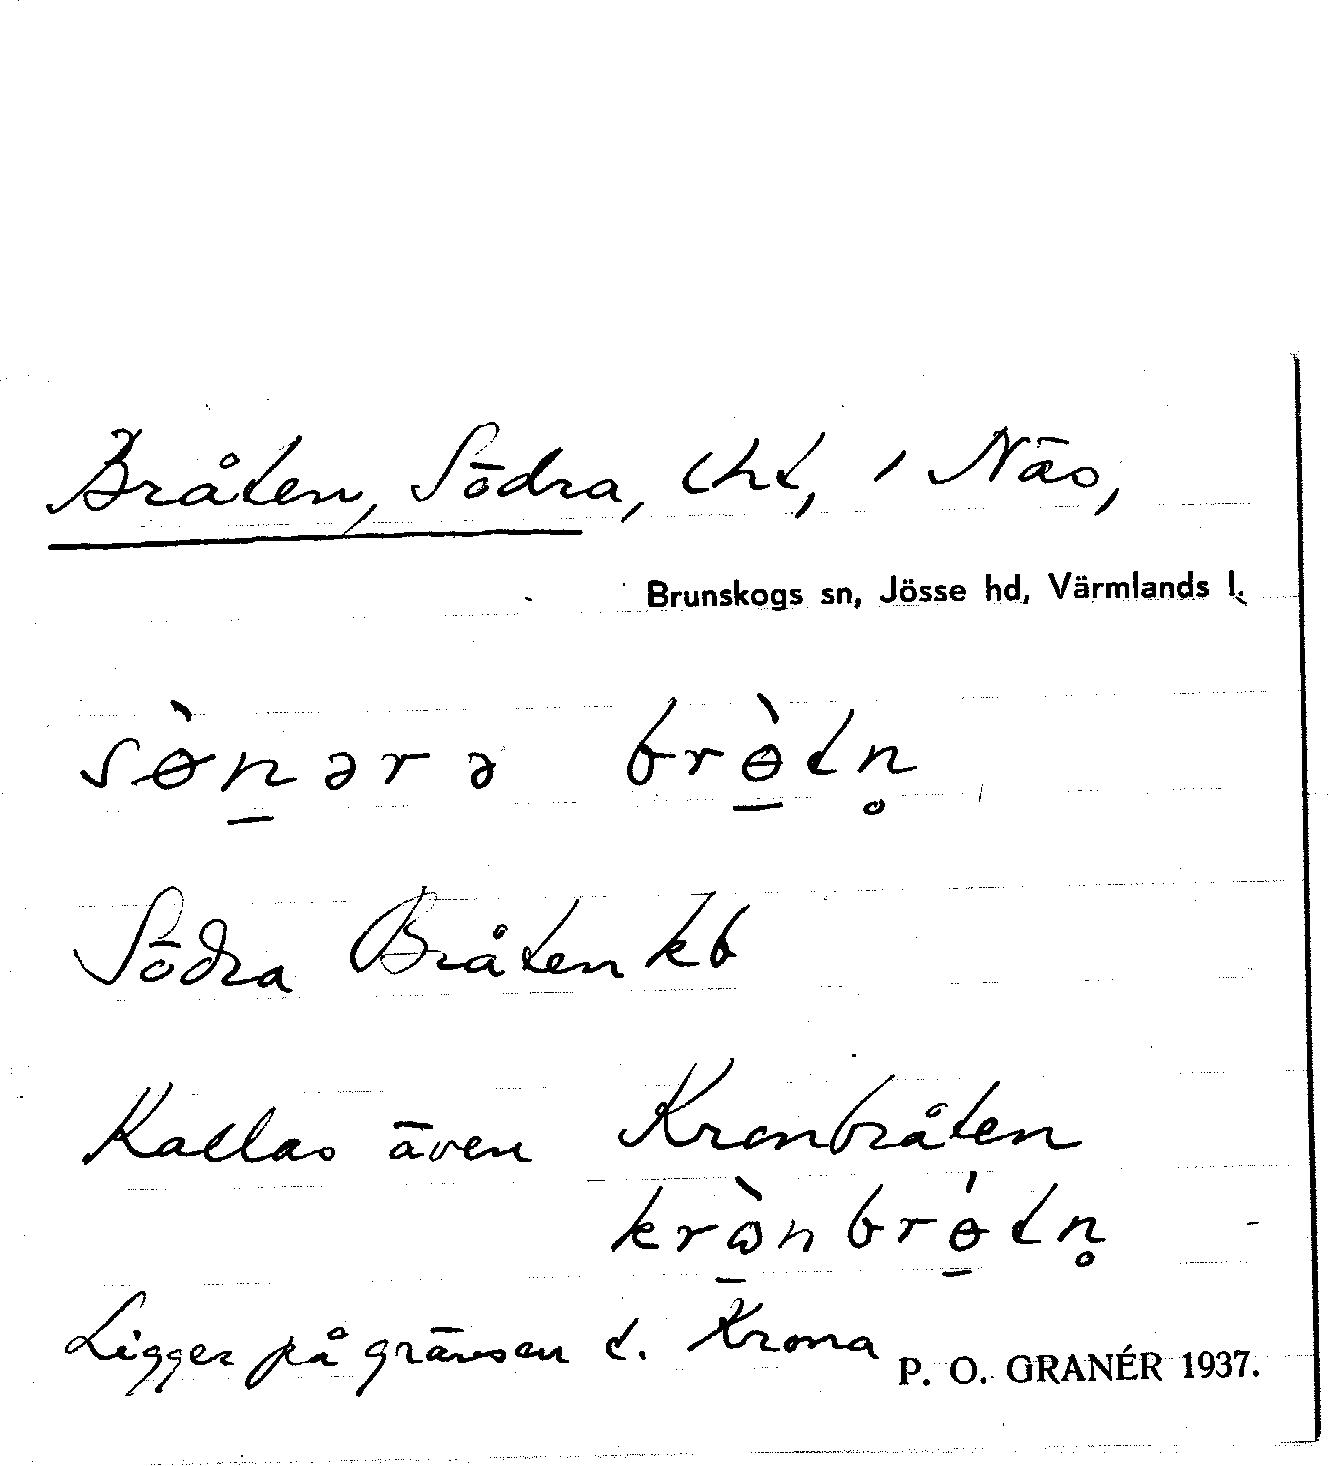 Bråten, Södra, tht, i Näs,
Brunskogs sn, Jösse hd, Värmlands l.
sɵ̀n̲ərə brɵ̲̀tn̥
Södra Bråten kb
Kallas även Kronbråten
krɷ̲̀nbrɵ̲́tn̥
Ligger på gränsen t. Krona
P. O. GRANÉR 1937.